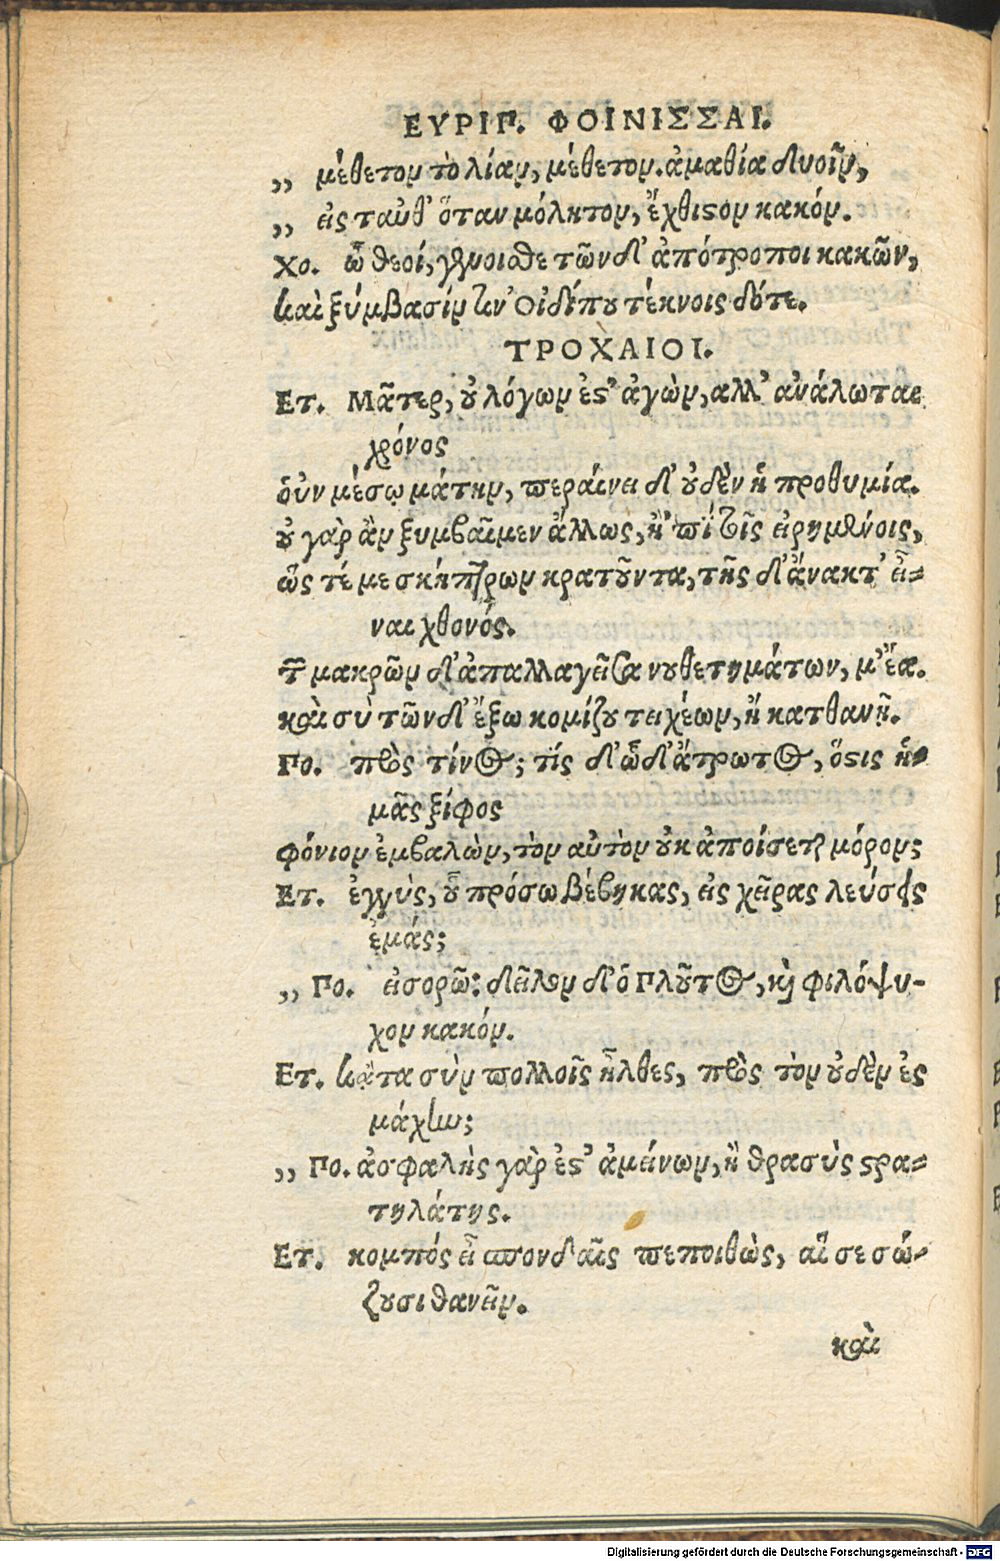 ΕΥΡΙΠ. ΦΟΙΝΙΣΣΑΙ.
„ μέθετον τὸ λίαν, μέθετον. ἀμαθία δυοῖν,
„ εἰς ταῦθ' ὅταν μόλητον, ἔχθιστον κακόν.
Χο. ὦ θεοί, γένοισθε τῶνδ' ἀπότροποι κακῶν,
καὶ ξύμβασίν τιν' Οἰδίπου τέκνοις δότε.
ΤΡΟΧΑΙΟΙ.
Ετ. Μᾶτερ, οὐ λόγων ἐσ' ἀγὼν, ἀλλ' ἀνάλωται
χρόνος
οὑν μέσῳ μάτην, περαίνει δ' οὐδὲν ἡ προθυμία.
οὐ γὰρ ἂν ξυμβαῖμεν ἄλλως, ἢ 'πὶ τοῖς εἰρημένοις,
ὥς τέ με σκήπτρων κρατοῦντα, τῆς δ' ἄνακτ' εἶ=
ναι χθονός.
τῶν μακρῶν δ' ἀπαλλαγεῖσα νουθετημάτων, μ' ἔα.
καὶ σὺ τῶνδ' ἔξω κομίζου τειχέων, ἢ κατθανῇ.
Πο. πρὸς τίνος; τίς δ' ὧδ' ἄτρωτος, ὅστις ἡ=
μᾶς ξίφος
φόνιον ἐμβαλὼν, τὸν αὐτὸν οὐκ ἀποίσεται μόρον;
Ετ. ἐγγὺς, οὗ πρόσω βέβηκας, εἰς χεῖρας λεύσεις
ἐμάς;
„ Πο. εἰσορῶ: δειλὸν δ' ὁ πλοῦτος, καὶ φιλόψυ-
χον κακόν.
Ετ. κᾆτα σὺν πολλοῖς ἦλθες, πρὸς τὸν οὐδὲν ἐς
μάχην;
„ Πο. ἀσφαλὴς γὰρ ἐσ' ἀμείνων, ἢ θρασὺς στρα=
τηλάτης.
Ετ. κομπός εἶ σπονδαῖς πεποιθὼς, αἵ σε σώ-
ζουσι θανεῖν.
καὶ
Digitalisierung gefördert durch die Deutsche Forschungsgemeinschaft - DFG